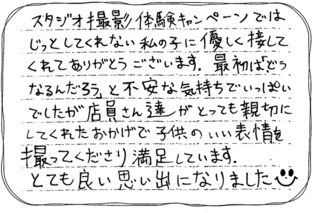 スタジオ撮影体験キャンペーンでは
じっとしてくれない私の子に優しく接して
くれてありがとうございます。最初はどう
なるんだろう、と不安な気持ちでいっぱい
でしたが店員さん達がとっても親切に
してくれたおかげで子供のいい表情を
撮ってくださり満足しています。
とても良い思い出になりました